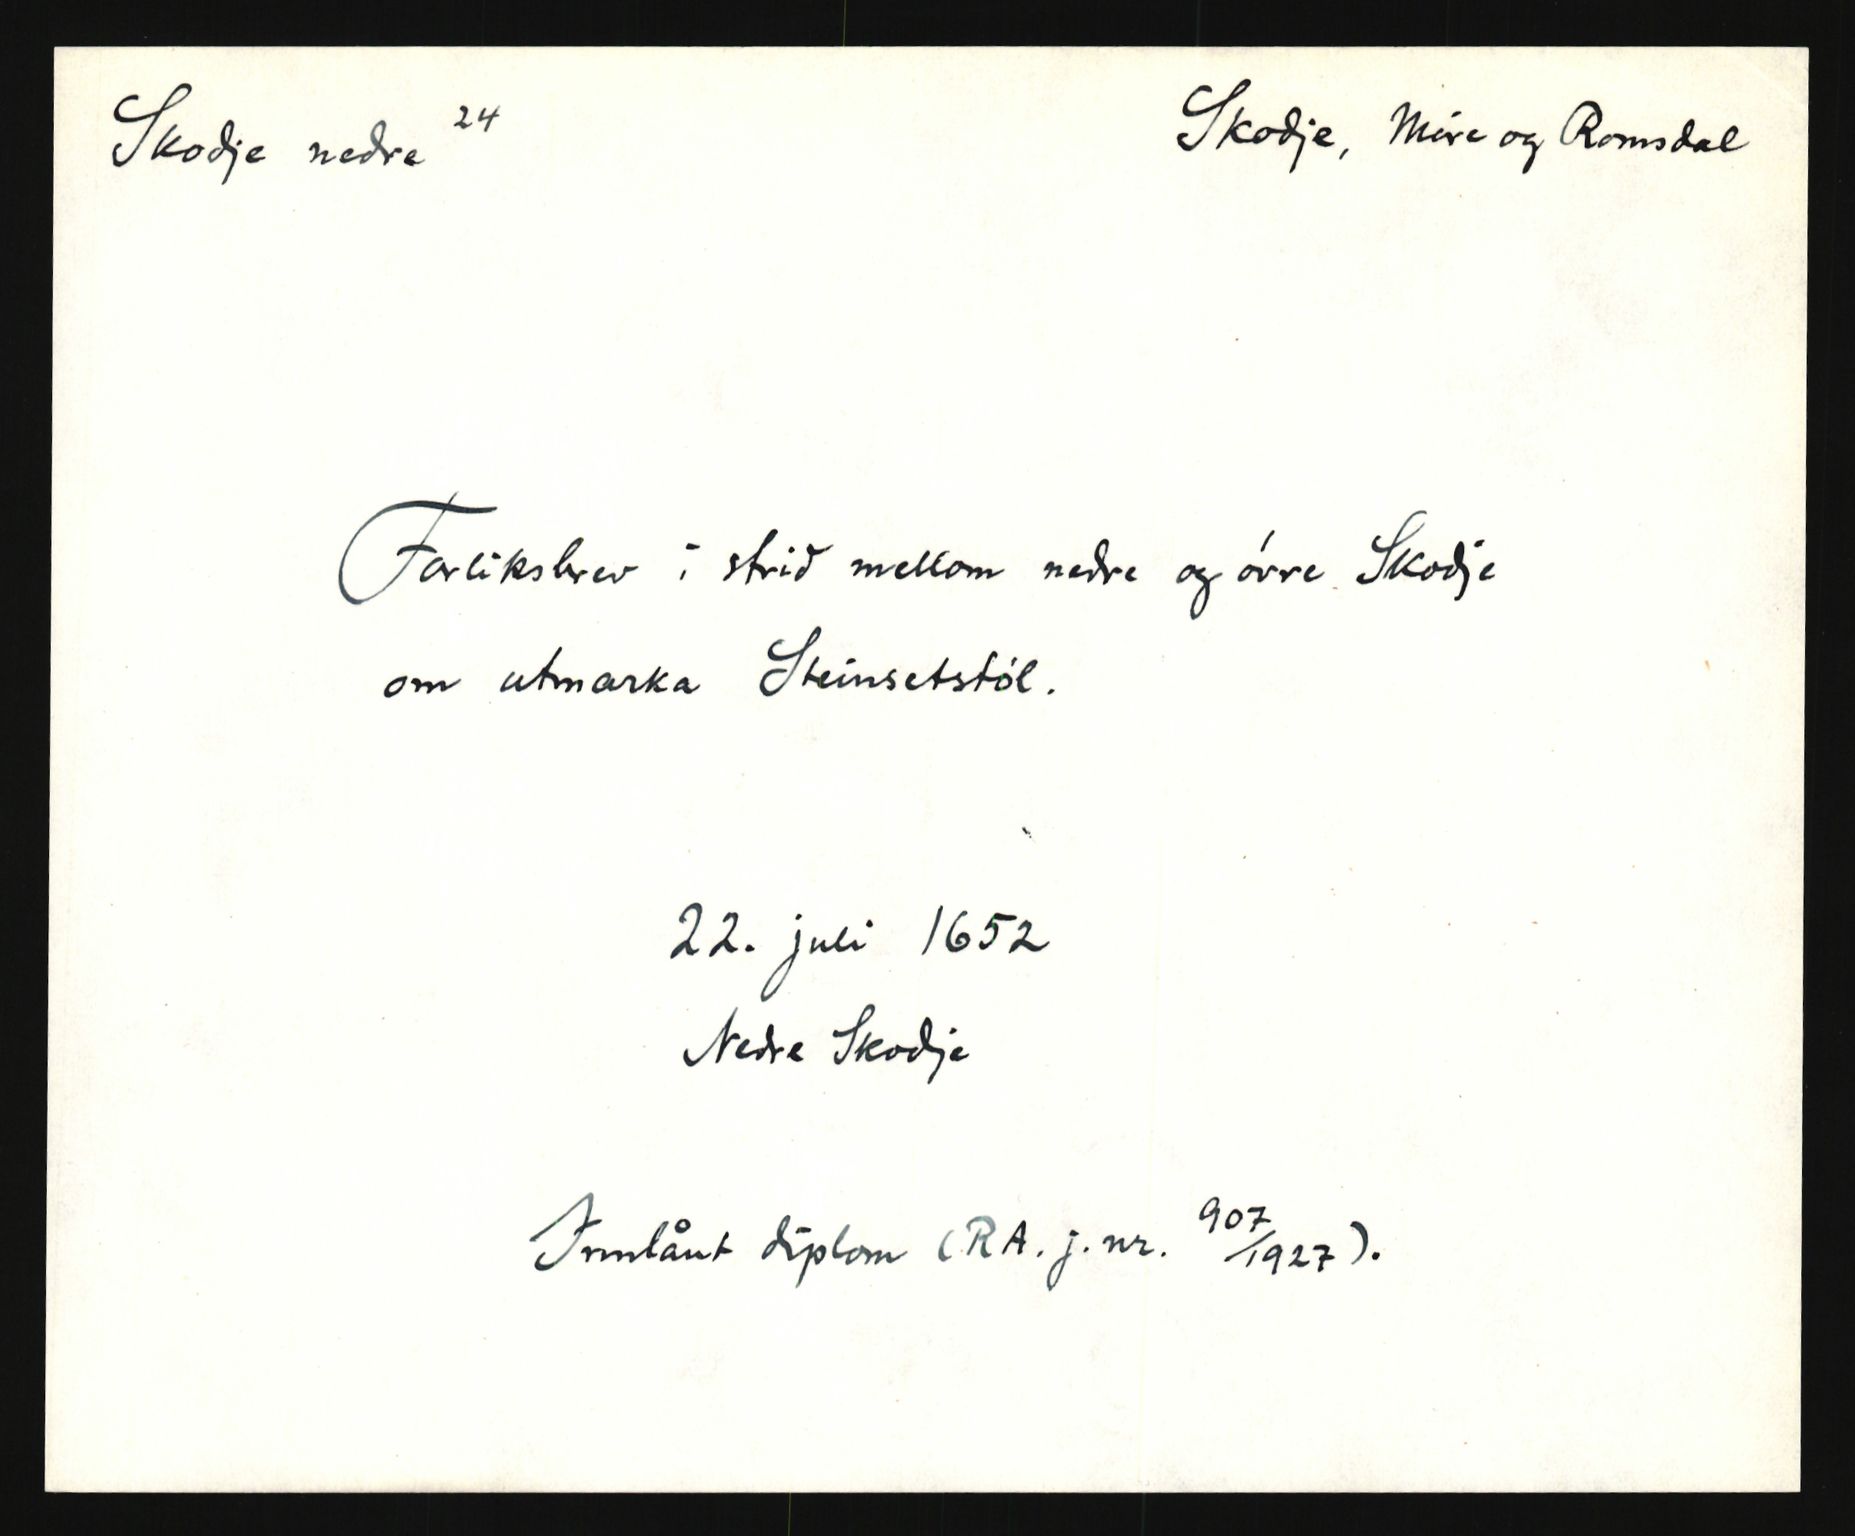 Skodje nedre 24
Skodje, Møre og Romsdal
Forliksbrev i strid mellom nedre og óvre Skodje
om utmarka Steinsetstól.
22. juli 1652
Nedre Skodje
Innlånt diplom (RA. j. nr. 907/1927).